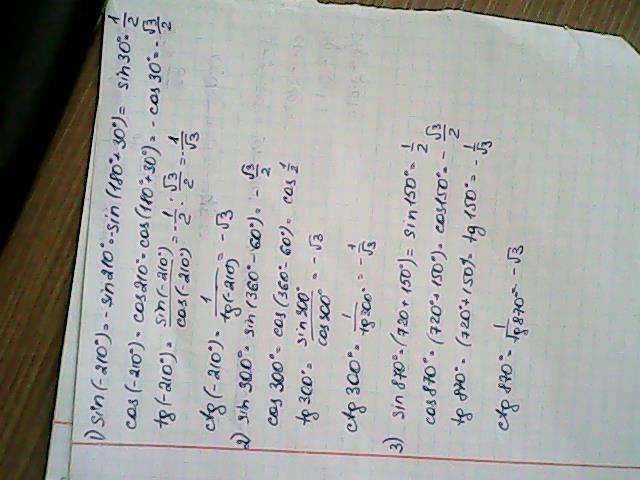 1) sin(-210°) = -sin210° = -sin(180°+30°) = sin30° = 1/2
cos(-210°) = cos210° = cos(180°+30°) = -cos30° = -√3/2
tg(-210°) = sin(-210°)/cos(-210°) = -1/2 · √3/2 = -1/√3
ctg(-210°) = 1/tg(-210) = -√3
2) sin 300° = sin(360°-60°) = -√3/2
cos 300° = cos(360°-60°) = cos 1/2
tg 300° = sin300°/cos300° = -√3
ctg 300° = 1/tg300° = -1/√3
3) sin 870° = (720+150°) = sin150° = 1/2
cos 870° = (720°+150°) = cos150° = -√3/2
tg 870° = (720°+150°) = tg 150° = -1/√3
ctg 870° = 1/tg870° = -√3